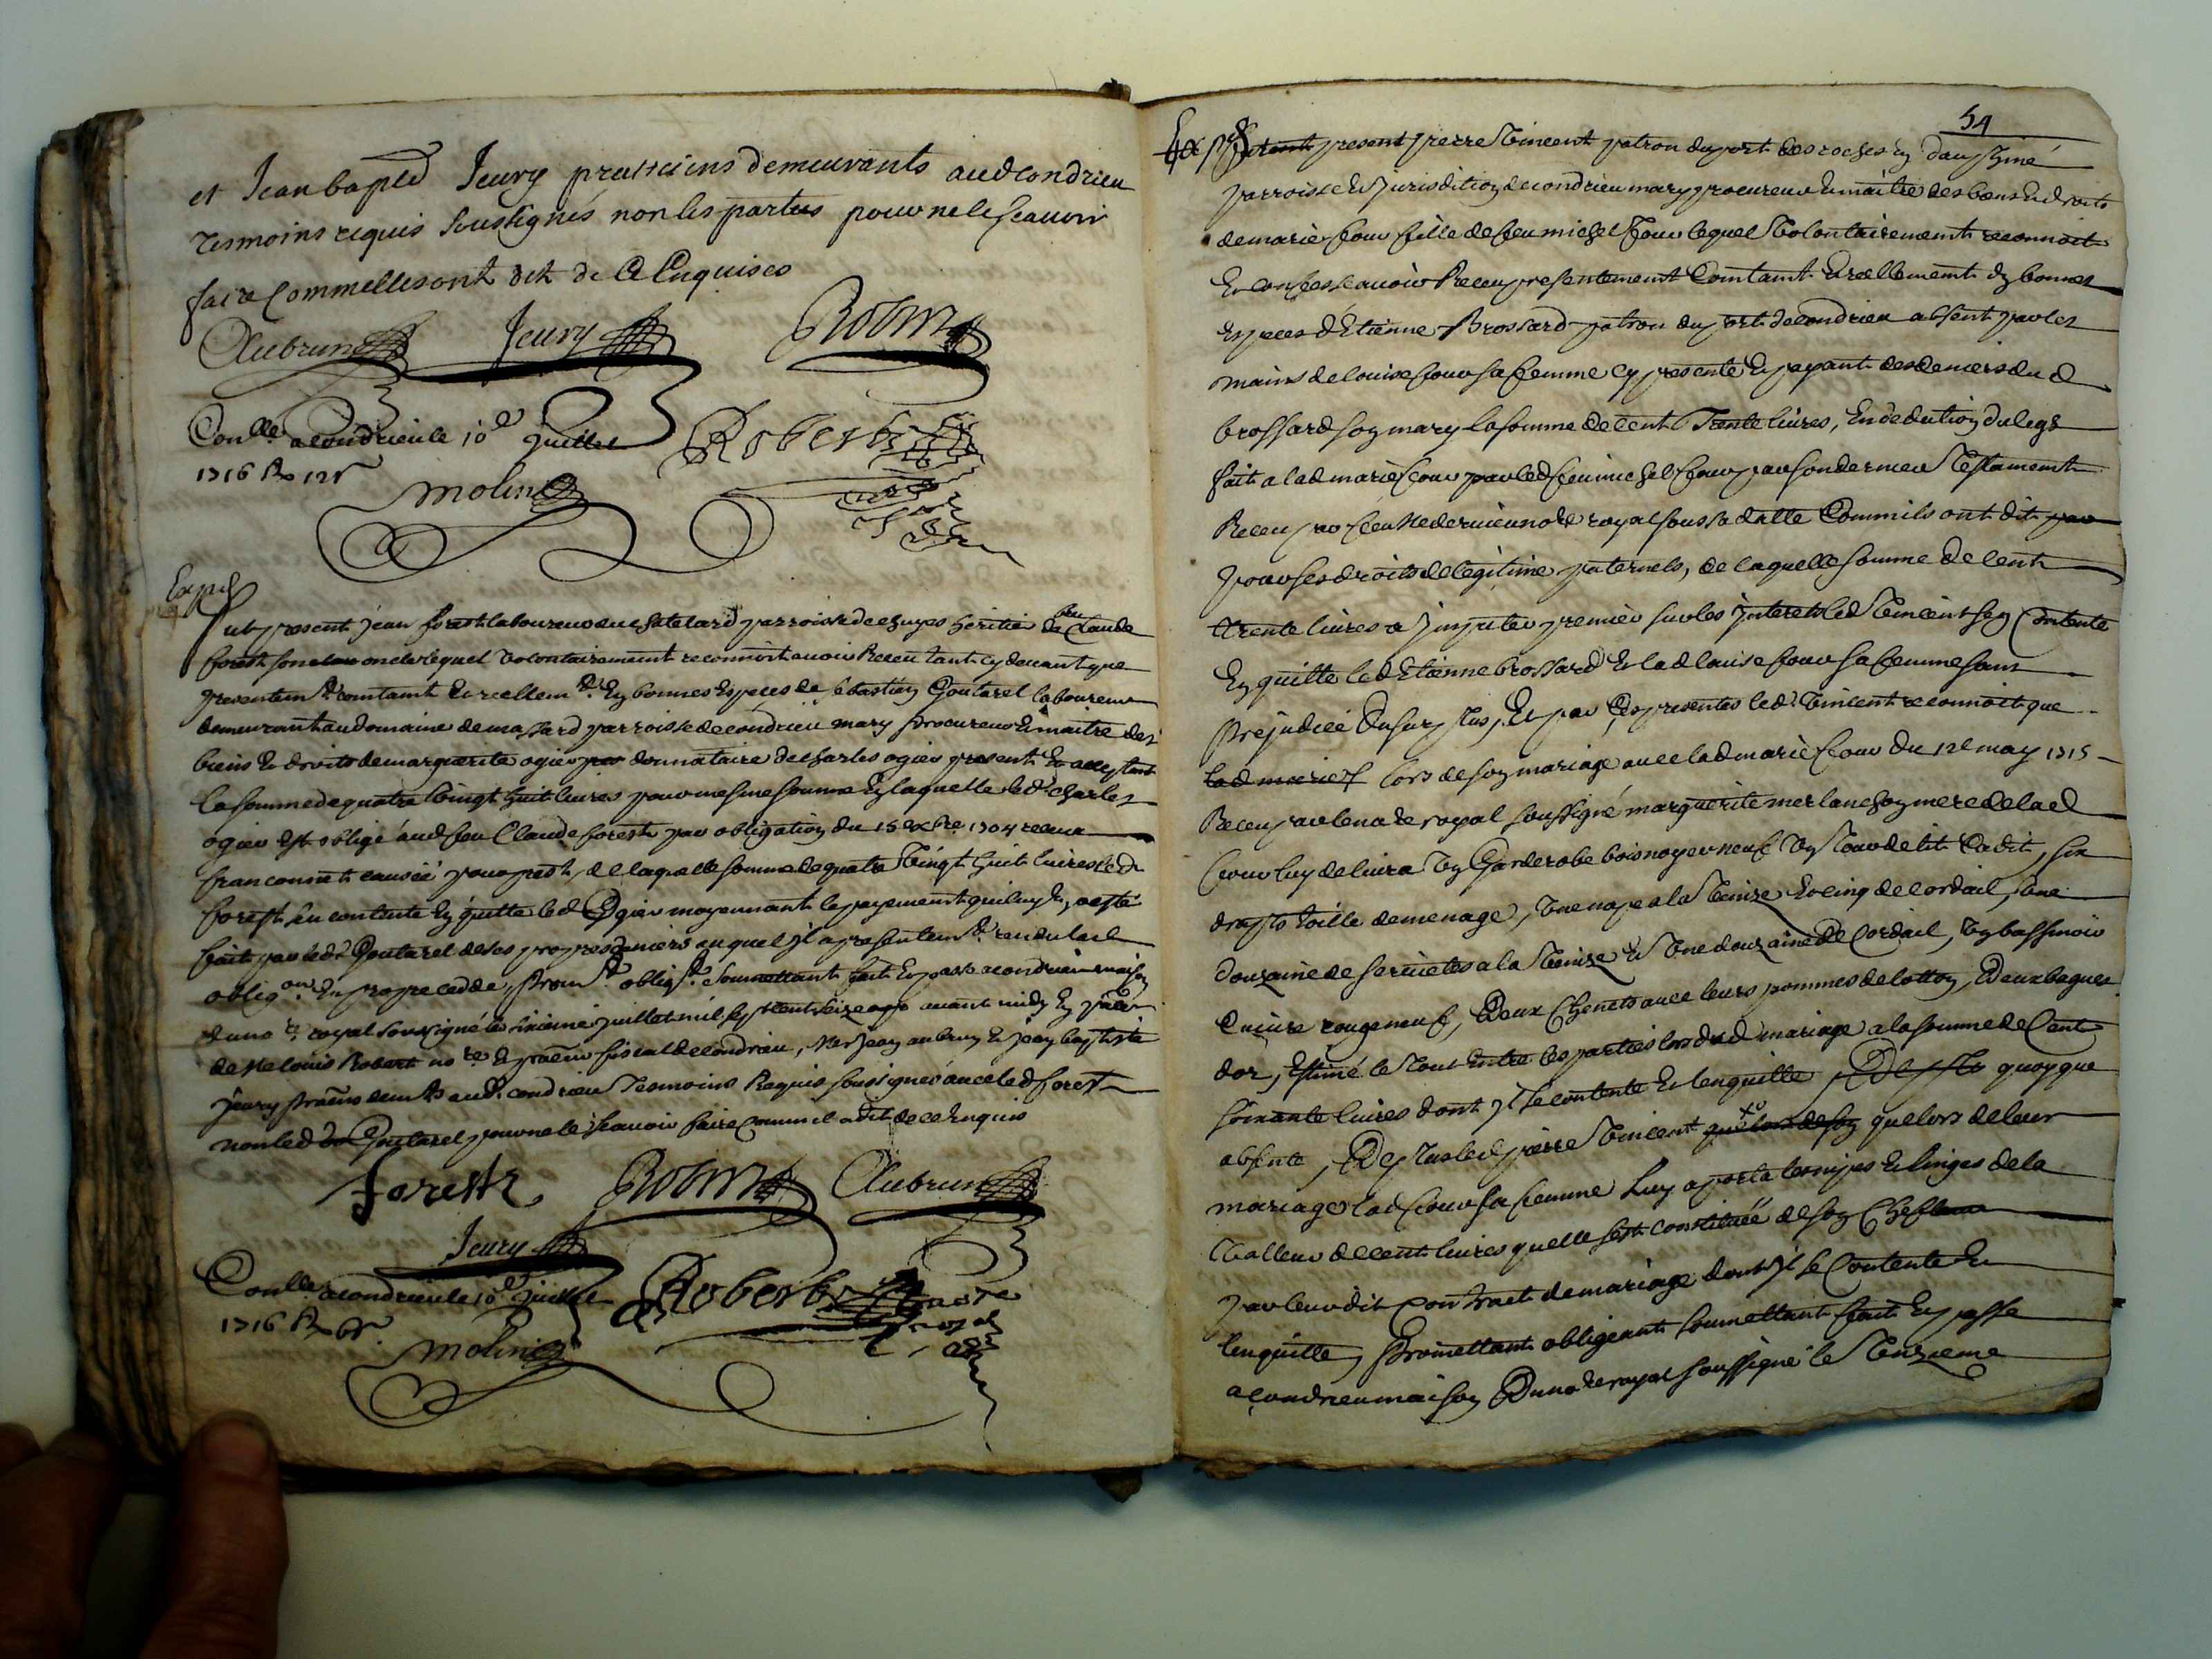 et Jean baptd Jeury pratticiens demeurants aud condrieu
tesmoins requis soussignés non les parties pour ne le scavoir
faire comm elles ont dit de ce Enquises
Aubrun Jeury Robin
Conllé a condrieu le 10e Juillet Robert
1716 R 12s
molin
Exped
fut present jean forest laboureur du chatelard parroisse de chuyes heritier de feu Claude
forest son oncle lequel volontairement reconnoit avoir Receu tant cy devant que
presentemt comtamt et reellemt En bonnes Especes de sebastien Goutarel laboureur
demeurant au domaine de massard parroisse de condrieu mary procureur Et maitre des
biens Et droits de marguerite ogier donnataire de charles ogier present Et acceptant
la somme de quatre vingt huit livres pour mesme somme En laquelle led charles
ogier Est obligé aud feu Claude forest par obligation du 15 xbre 1704 receue
franc causée pour prest, de laquelle somme de quatre vingt huit livres led
forest sen contente En quitte led Ogier moyennant le payement qui luy En a esté
fait par led Goutarel de ses propres deniers auquel Jl a presentemt rendu lad
obligon En propre cedde, promt obligt soumettant fait Et passe a condrieu maison
du no re royal soussigné le sixieme juillet mil sept cent seize avant midy En presence
de Me louis Robert no re Et procureur fiscal de condrieu, Me Jean aubrun Et jean baptiste
jeury pratns demts aud condrieu Tesmoins Requis soussignés avec led forest
non led Goutarel pour ne le scavoir faire comm il a dit de ce Enquis
forest Robin Aubrun
Jeury
Conllé a condrieu le 10e Juillet Robert
1716 R 6s notre royal
molin
54
Exped fut present pierre Vincent patron du port des roches En dauphiné
parroisse Et Jurisdition de condrieu mary procureur Et maitre des biens Et droits
de marie four fille de feu michel four lequel volontairement reconnoit
Et confesse avoir Receu presentement Comtamt Et reellement En bonnes
Especes d'Etienne Brossard patron du port de condrieu absent par les
mains de louise four sa femme cy presente Et payant des deniers du d
brossard son mary la somme de cent Trente livres, En dedution du legs
fait a lad marie four par led feu michel four par son dernier Testament
Receu par feu Me royal sous sa datte Comm ils ont dit
pour ses droits de legitime paternels, de laquelle somme de cent
trente livres a Jmputer premier sur les Jnterets led Vincent sen Contente
En quitte led Etienne brossard Et lad louise four sa femme sans
Prejudice du surplus, Et par Ces presentes led Vincent reconnoit que
lad marie lors de son mariage avec lad marie four du 12e may 1715
Receu par le no re royal soussigné marguerite merlan mere de lad
four luy delivra Un Garderobe bois noyer neuf Un tour de lit Cadit, six
draps toille de menage, Une nape a la Venize Et cinq de cordail, Une
douzaine de serviettes a la Venize Et Une douzaine de Cordail, Un bassinoir
Cuivre rouge neuf, Deux Chenets avec leurs pommes de lotton, Deux bagues
dor, Estimé le tout Entre les parties lors dud mariage a la somme de Cent
soixante livres dont Jl se contente Et len quitte quoyque
absente, De plus led pierre Vincent que lors de son que lors de leur
mariage lad four sa femme luy aporta les nipes Et linges de la
Valleur de cent livres quelle sest constituée de son Chef
par leur dit Contract de mariage dont Jl se Contente Et
len quitte, Promettant obligeant soumettant fait Et passe
a condrieu maison Du no re royal soussigné le Onzieme